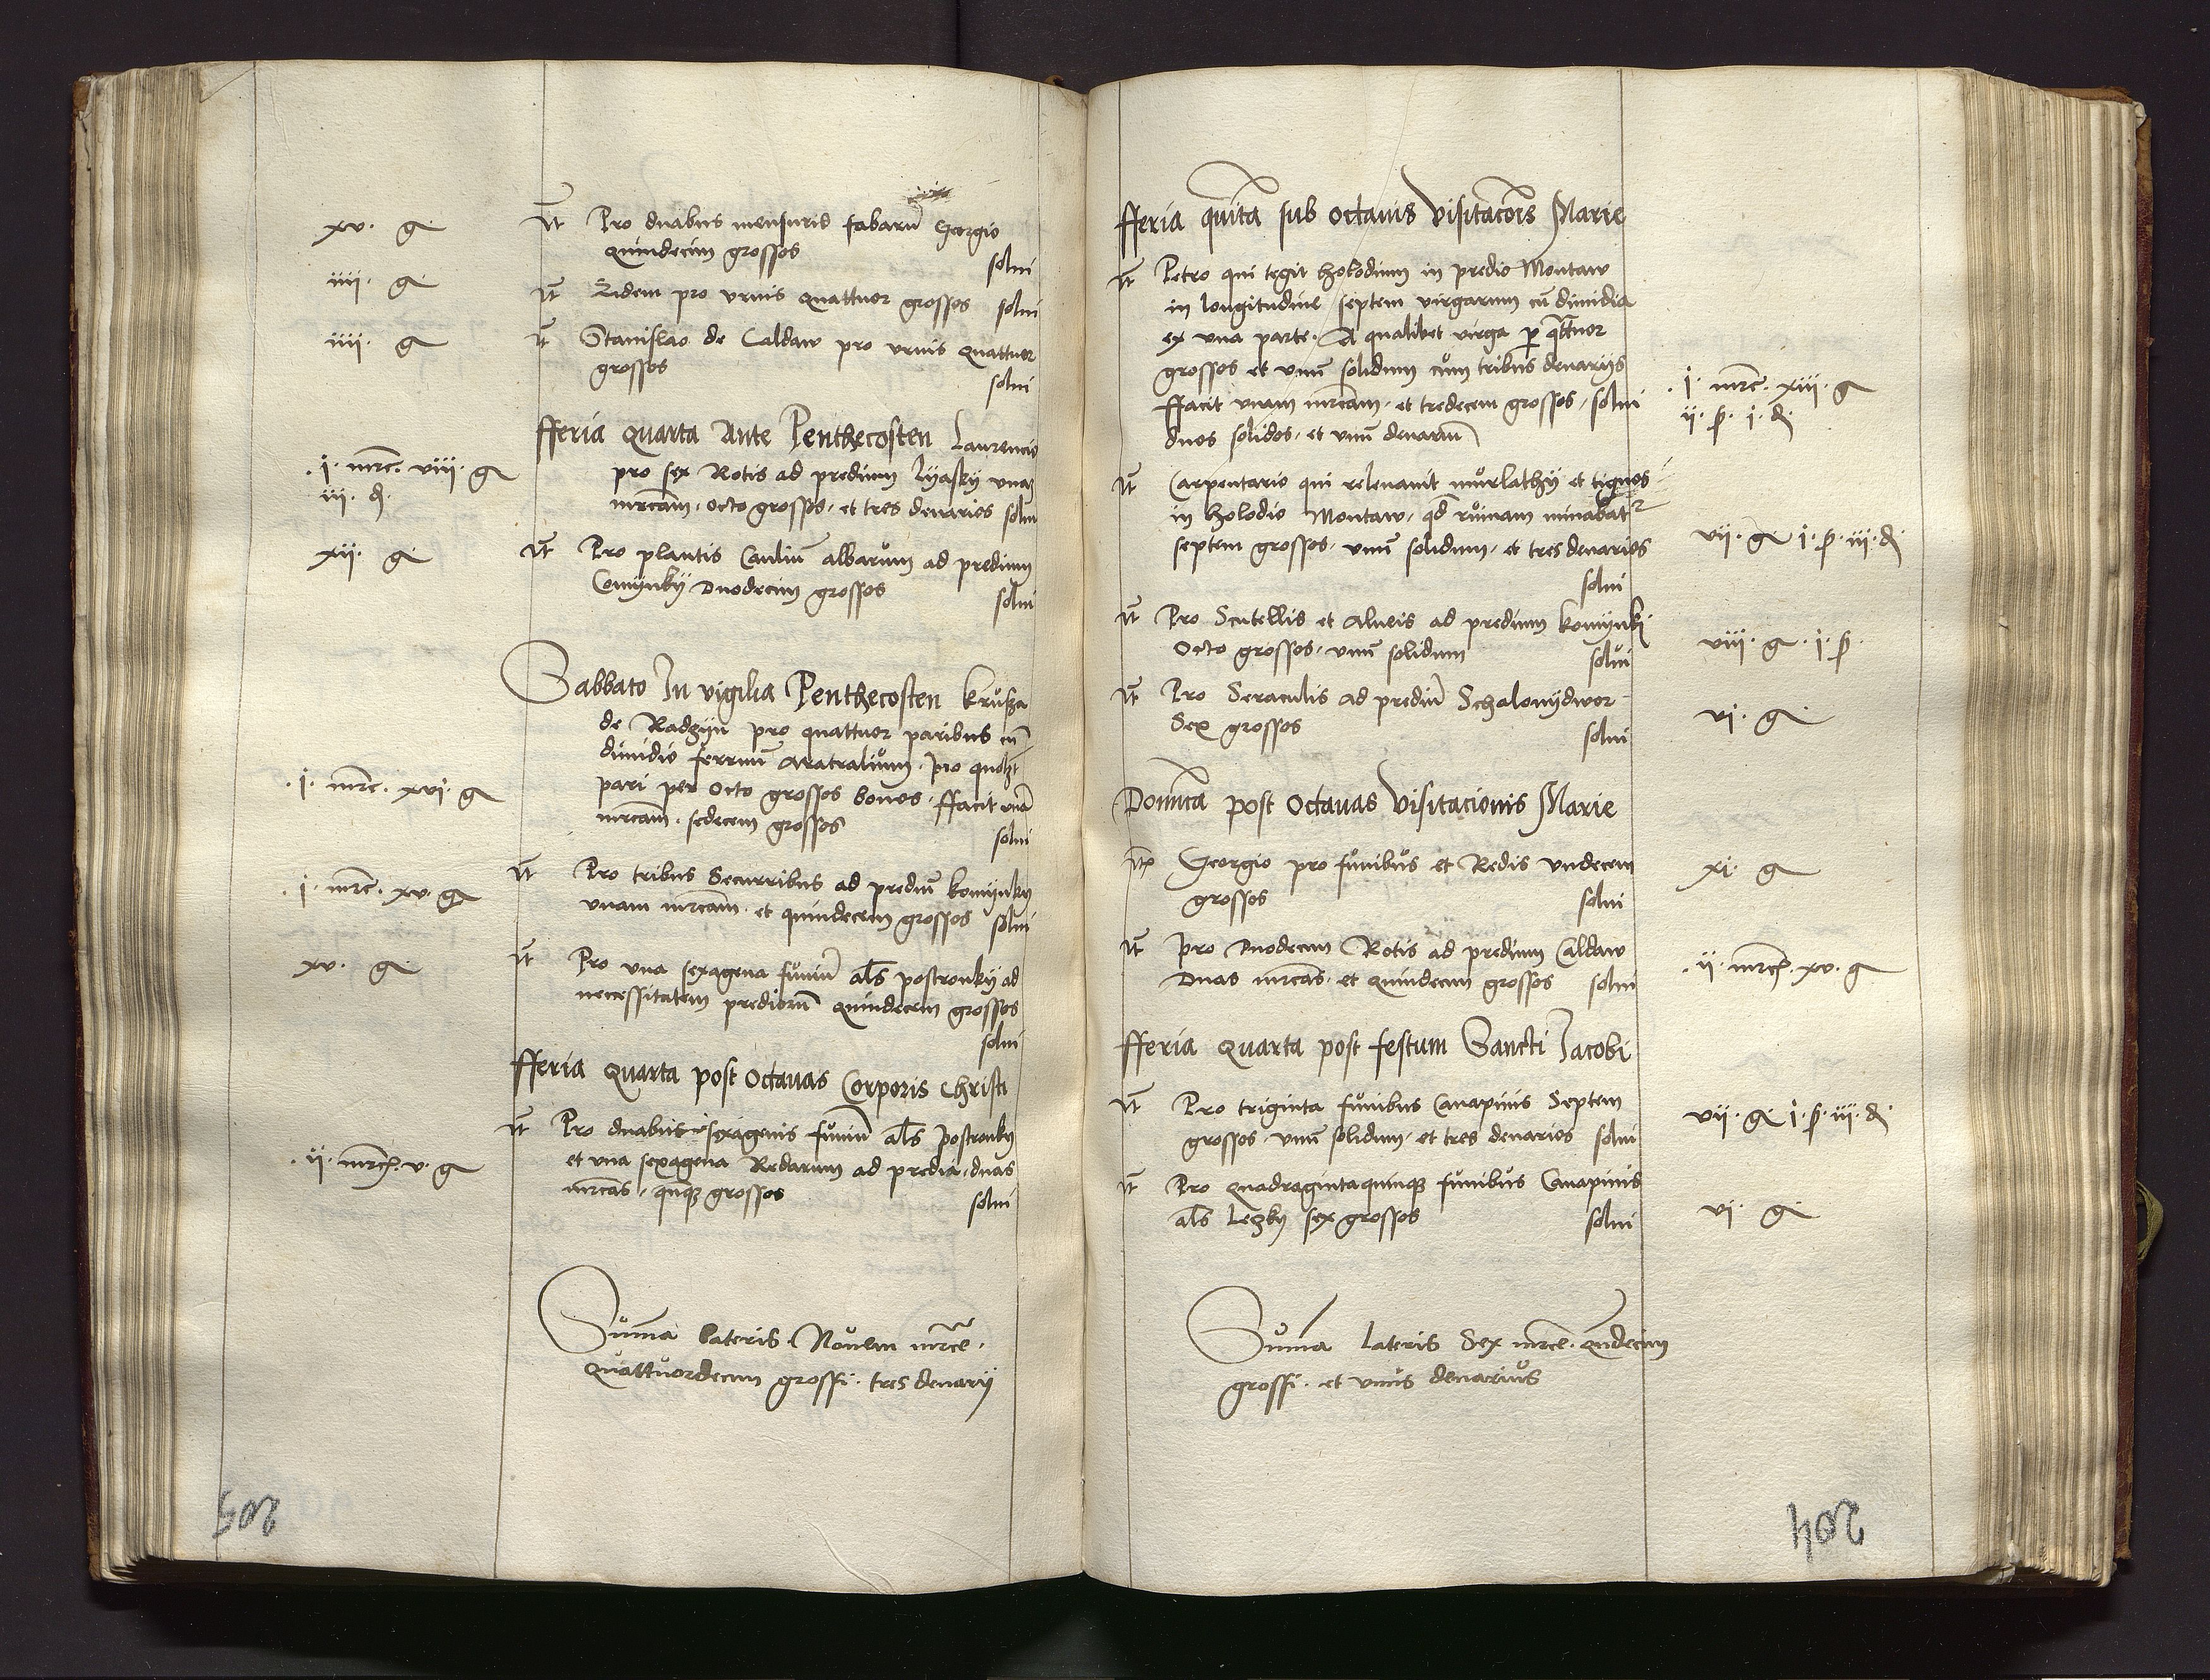 xv. g. Jt Pro duabus mensuris fabarū Georgio
quindecim grossos solui
iiii. g. Jt Eidem pro vrnis quattuor grossos solui
iiii. g. Jt Stanislao de Caldaw pro vrnis quattuor
grossos solui
fferia quarta Ante Penthecosten Laurencio
.i. mrc. viii. g pro sex Rotis ad predium Lyasky vnam
iii. d. mrcam. octo grossos. et tres denarios solui
xii. g. Jt Pro plantis Caulium albarum ad predium
Comynky Duodecim grossos solui
Sabbato In vigilia Penthecosten Krusza
de Radzyn pro quattuor paribus cū
dimidio ferrum aratralium. pro quolzt
.i. mrc. xvi. g pari per octo grossos bonos. ffacit vnā
mrcam. sedecem grossos solui
.i. mrc. xv. g Jt Pro tribus Securribus ad prediū komynky
vnam mrcam. et quindecem grossos solui
xv. g. Jt Pro vna sexagena funiū als postronky ad
necessitatem prediorū quindecem grossos
solui
fferia quarta post octauas Corporis Christi
Jt Pro duabus sexagenis funiū als postronky
.ii. mrc. v. g et vna sexagena Redarum ad predia. duas
mrcas. quinqz grossos solui
Suma lateris Nouem mrce.
quattuordecim grossi. tres denarij
205
fferia quinta sub octauis visitacois Marie
Jt Petro qui tegit holodium in predio Montaw
in longitudine septem virgarum cū dimidia
ex vna parte. A qualibet virga p qttuor
grossos et vnū solidum cum tribus denarijs
ffacit vnam mrcam. et tredecem grossos. solui .i. mrc. xiii. g
duos solidos. et vnū denariū ii. s. i. d.
Jt Carpentario qui releuauit murlathy et tignos
in holodio Montaw. qd ruinam minabat
septem grossos. vnū solidum. et tres denarios vii. g i. s. iii. d
solui
Jt Pro Scutellis et alueis ad predium komynki
Octo grossos. vnū solidum solui viii. g. i. s.
Jt Pro Seraculis ad prediū Schalomydwor
Sex grossos solui vi. g.
Domica post Octauas visitacionis Marie
Jt Georgio pro funibus et Redis vndecem xi. g
grossos solui
Jt pro Duodecim Rotis ad predium Caldaw
Duas mrcas. et quindecim grossos solui .ii. mrc. xv. g
fferia quarta post festum Sancti Jacobi
Jt Pro triginta funibus Canapinis Septem
grossos. vnū solidum. et tres denarios solui vii. g. i. s. iii. d.
Jt Pro quadragintaquinqz funibus Canapinis
als Lezky sex grossos solui vi. g.
Suma lateris Sex mrce. qndecim
grossi. et vnus denarius
204